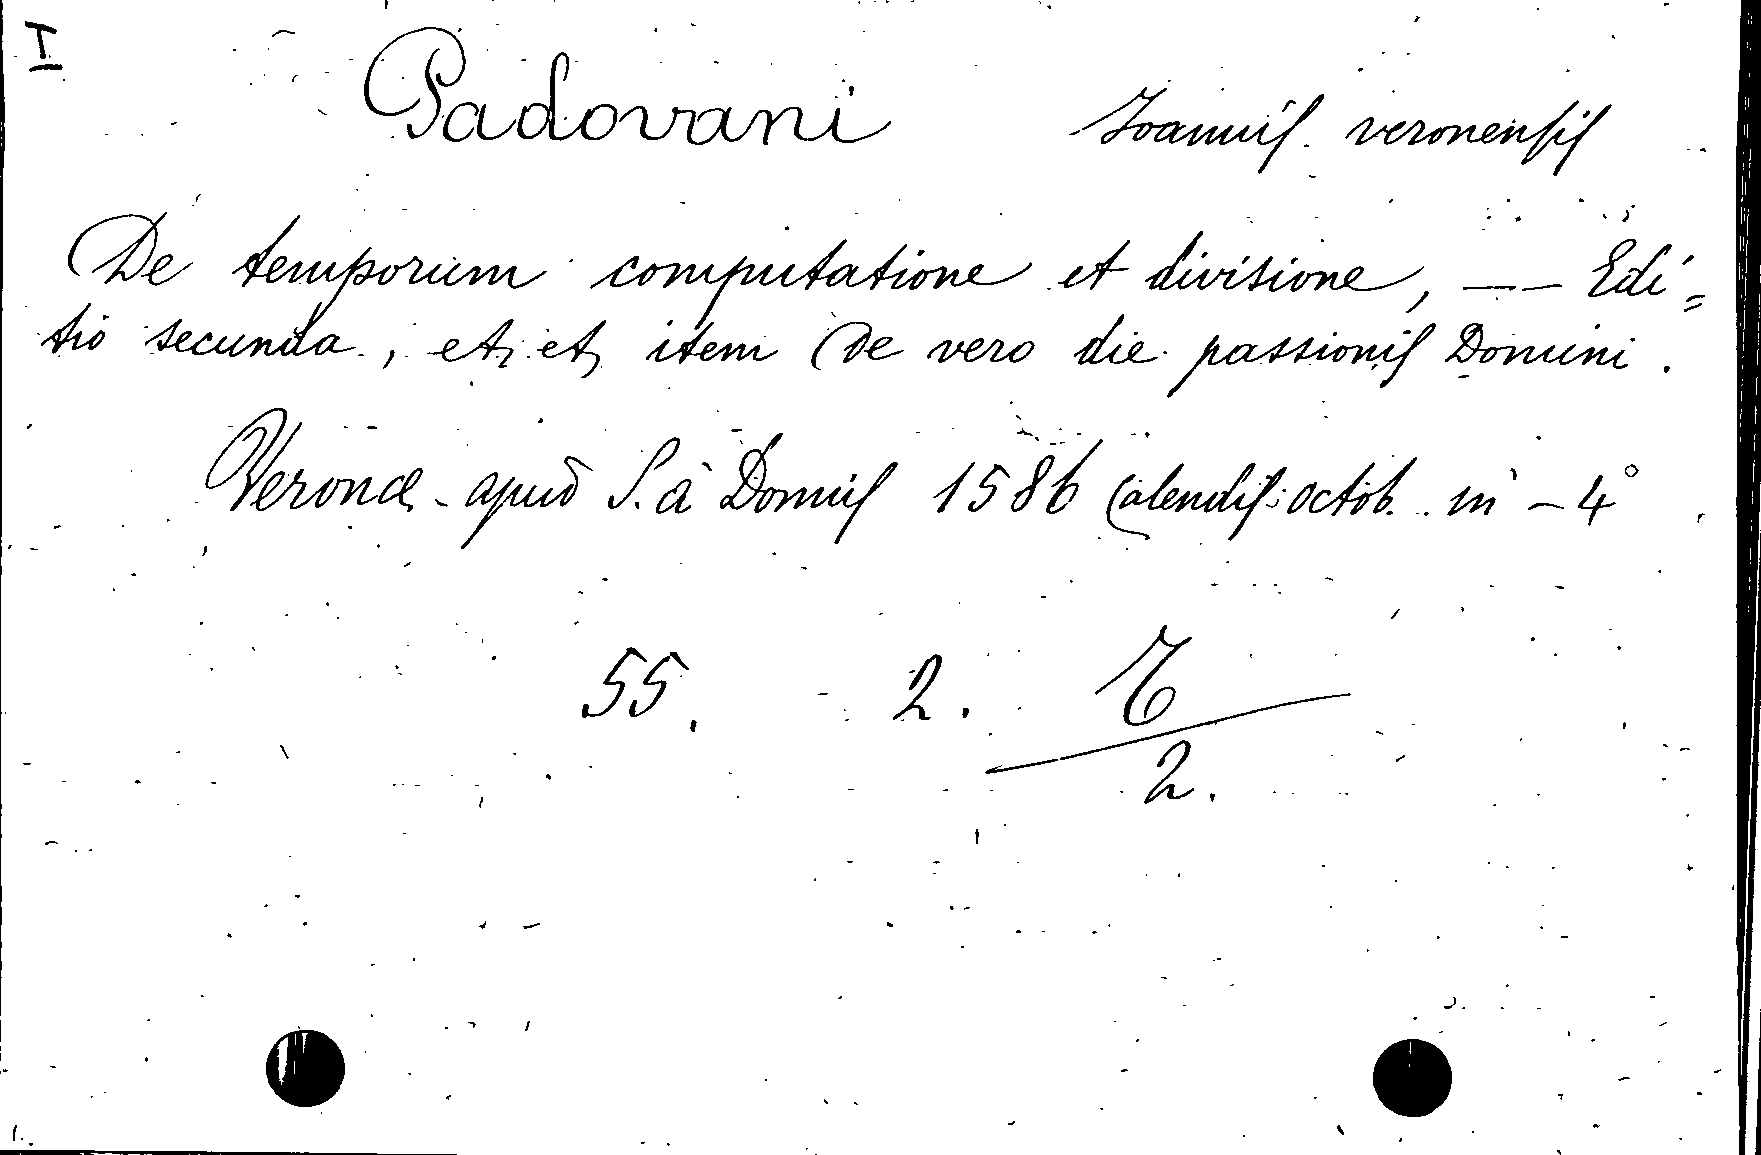 I
Padovani Ioannis. veronensis
De temporum computatione et divisione, — — Edi=
tio secunda, et, et, item De vero die passionis Domini.
Veronæ - apud S. à Donnis 1586 Calendis: octob. in - 4°
55. 2. 
2.